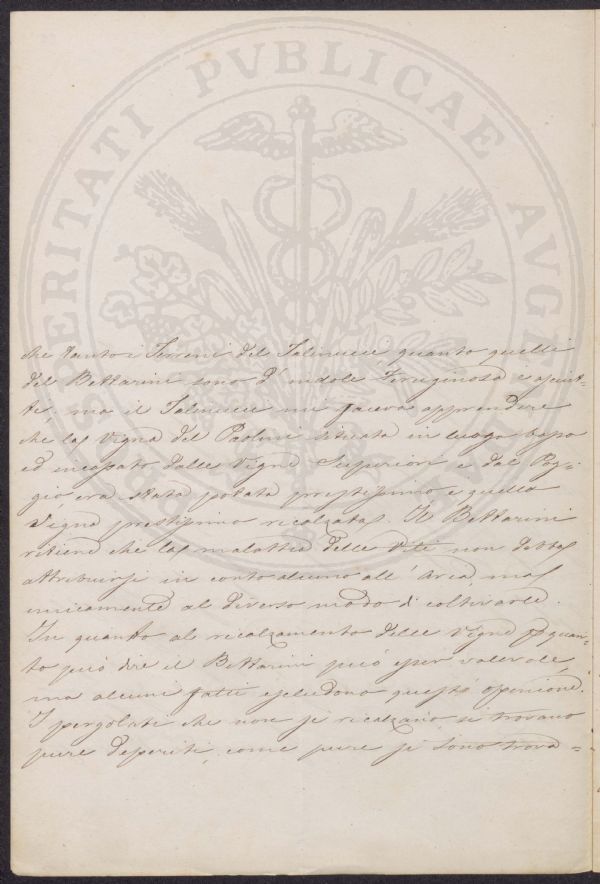 PROSPERITATI PVBLICAE AVGENDAE
che tanto i Terreni del Salinucci quanto quelli
del Bettarini sono d'indole Feruginosa e asciut=
te, ma il Salinucci mi faceva apprendere
che la Vigna del Paolini situata in luogo basso
ed incassato dalle Vigne Superiori e dal Pog=
gio, era stata potata prestissimo e quella
Vigna prestissimo ricalzata. Il Bettarini
ritiene che la malattia delle Viti non debba
attribuirsi in conto alcuno all'area, ma
unicamente al diverso modo di coltivarle.
In quanto al ricalzamento delle Vigne quan=
to può dire il Bettarini può esser valevole,
ma alcuni fatti escludono questa opinione.
I pergolati che non si ricalzano, si trovano
pure deperiti, come pure si sono trova=